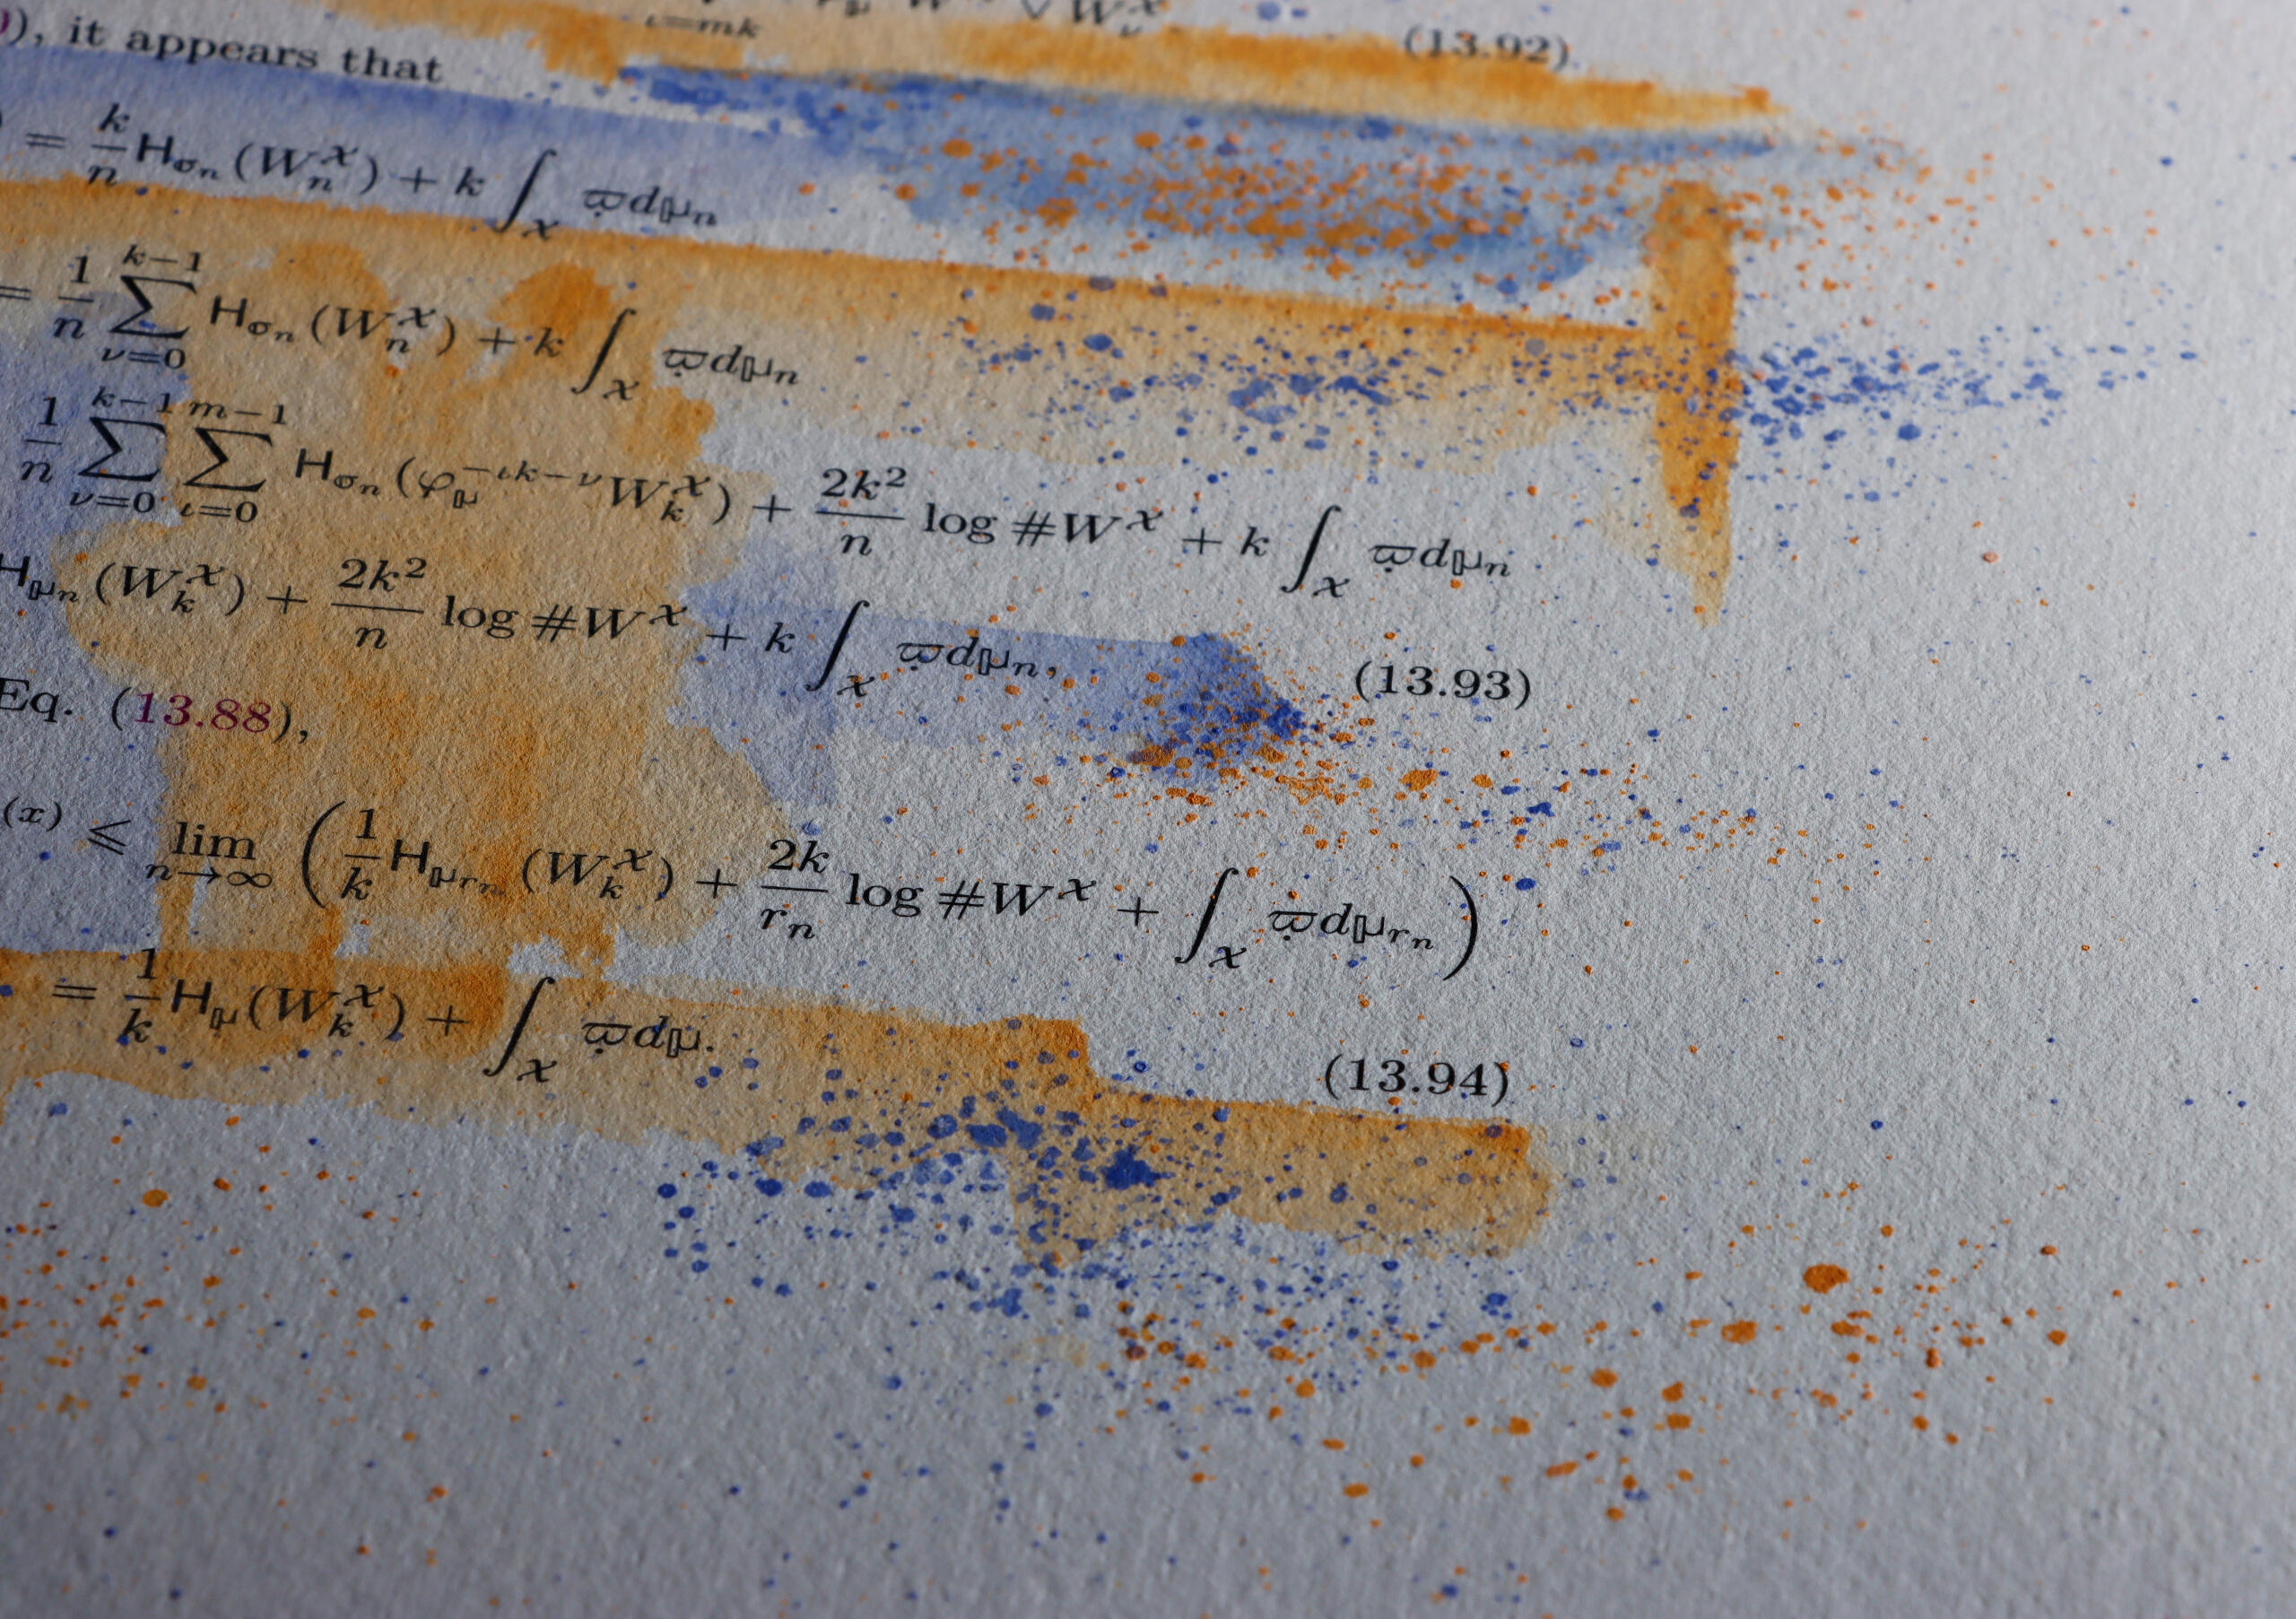 ι=mk W ∨ W_ν^𝒳 (13.92)
), it appears that
) = k/n H_{σ_n}(W_n^𝒳) + k ∫_𝒳 ϖ̣dμ_n
= 1/n ∑_{ν=0}^{k−1} H_{σ_n}(W_n^𝒳) + k ∫_𝒳 ϖ̣dμ_n
1/n ∑_{ν=0}^{k−1} ∑_{ι=0}^{m−1} H_{σ_n}(φ_μ^{−ιk−ν}W_k^𝒳) + 2k²/n log #W^𝒳 + k ∫_𝒳 ϖ̣dμ_n
H_{μ_n}(W_k^𝒳) + 2k²/n log #W^𝒳 + k ∫_𝒳 ϖ̣dμ_n, (13.93)
Eq. (13.88),
(x) ⩽ lim_{n→∞} (1/k H_{μ_{r_n}}(W_k^𝒳) + 2k/r_n log #W^𝒳 + ∫_𝒳 ϖ̣dμ_{r_n})
= 1/k H_μ(W_k^𝒳) + ∫_𝒳 ϖ̣dμ. (13.94)